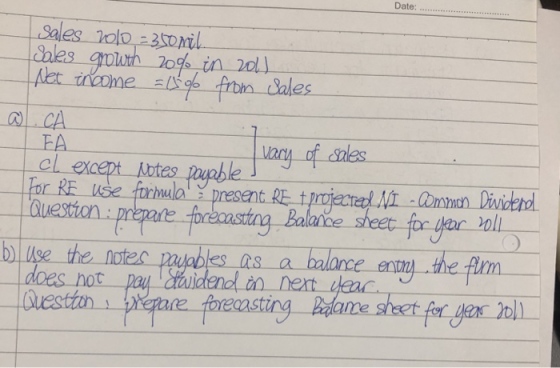 Date:
Sales 2010 = 350 mil
Sales growth 20% in 2011
Net income = 15% from Sales
a) CA
FA
CL except Notes payable ] vary of sales
For RE use formula : present RE + projected NI - Common Dividend
Question : prepare forecasting Balance sheet for year 2011
b) Use the notes payables as a balance entry. the firm
does not pay dividend in next year.
Question : prepare forecasting Balance sheet for year 2011